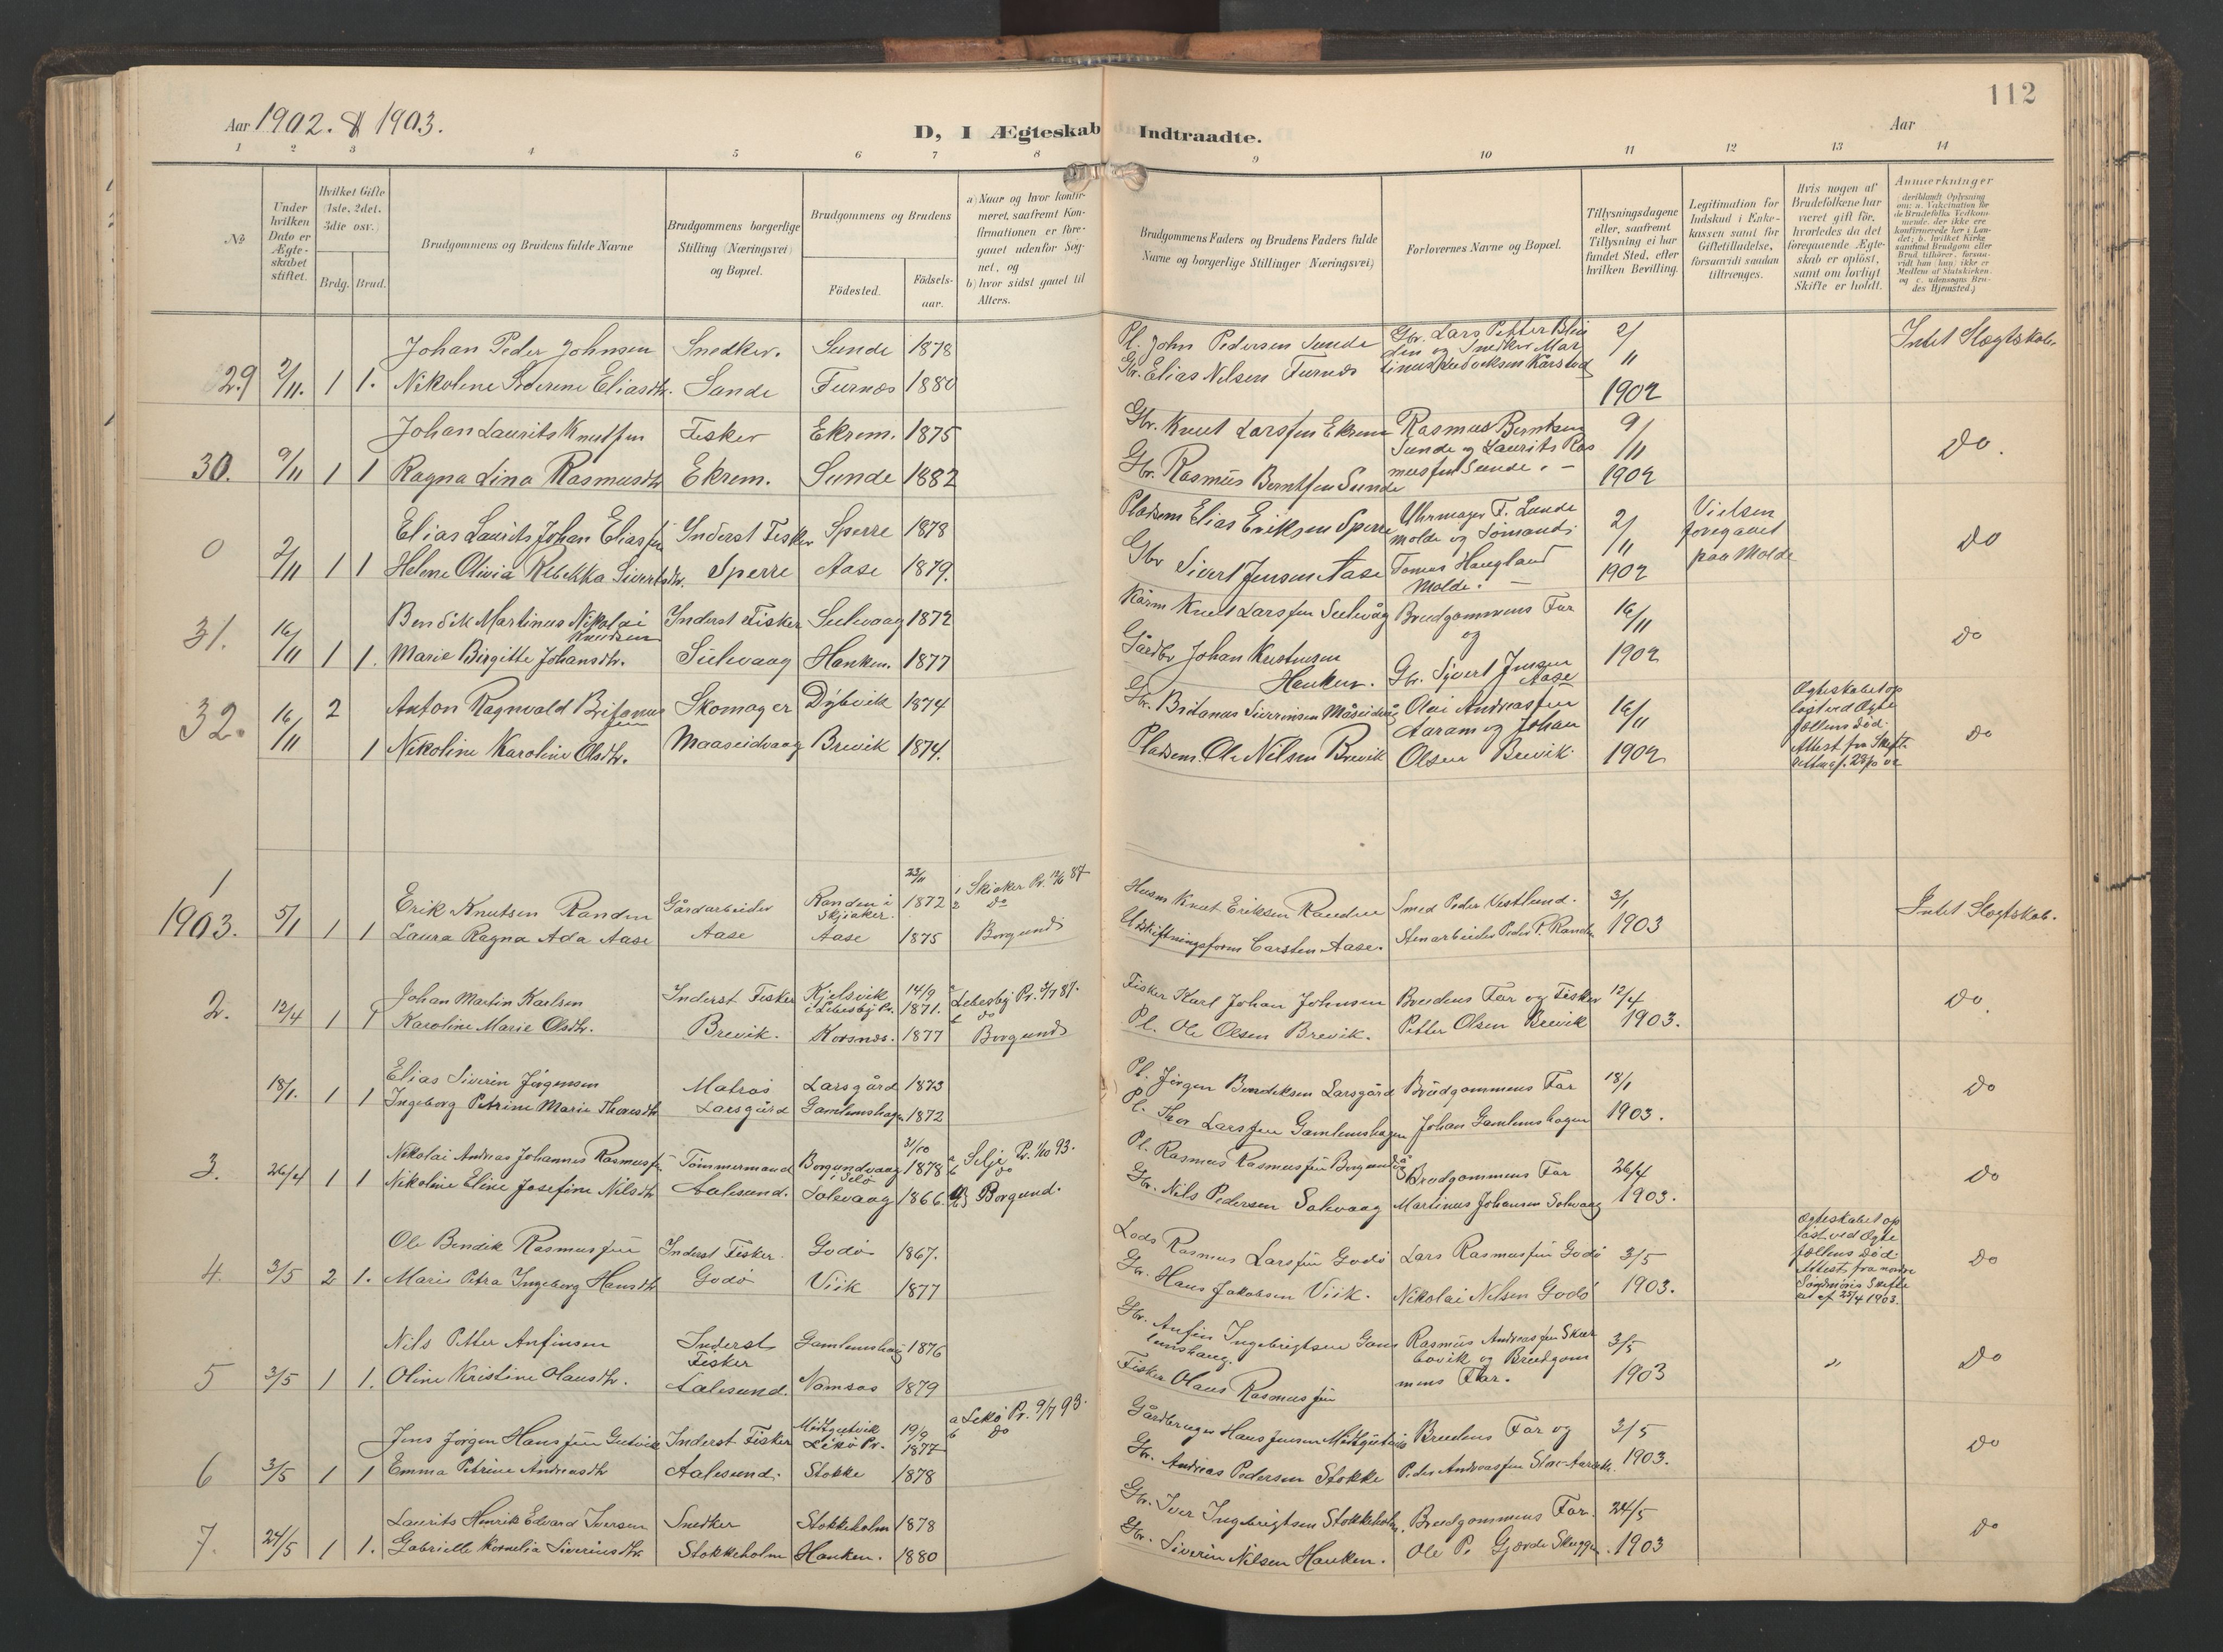 112
Aar 1902. & 1903.
D, I Ægteskab Indtraadte.
Aar
1 2 3 4 5 6 7 8 9 10 11 12 13 14
No
Under hvilken Dato er Ægteskabet stiftet.
Hvilket Gifte (1ste, 2det, 3die osv.)
Brdg. Brud.
Brudgommens og Brudens fulde Navne
Brudgommens borgerlige Stilling (Næringsvei) og Bopæl.
Brudgommens og Brudens
Födested.
Födselsaar.
a) Naar og hvor konfirmeret, saafremt Konfirmationen er foregaaet udenfor Sognet, og
b) hvor sidst gaaet til Alters.
Brudgommens Faders og Brudens Faders fulde Navne og borgerlige Stillinger (Næringsvei)
Forlovernes Navne og Bopæl.
Tillysningsdagene eller, saafremt Tillysning ei har fundet Sted, efter hvilken Bevilling.
Legitimation for Indskud i Enkekassen samt for Giftetilladelse, forsaavidt saadan tiltrænges.
Hvis nogen af Brudefolkene har været gift för, hvorledes da det foregaaende Ægteskab er oplöst, samt om lovligt Skifte er holdt.
Anmerkninger
29 2/11. 1 1. Johan Peder Johnsen Snedker. Sunde 1878 Pl. John Pedersen Sunde Gbr. Lars Petter Blin 2/11 1902 Intet Slægtskab.
Nikoline Severine Eliasdtr. Sande Furnæs 1880 Gbr. Elias Nilsen Furnæs
30. 9/11 1 1 Johan Laurits Knutsen Fisker Ekrem. 1875 Gbr. Knut Larssen Ekrem Rasmus Berntsen 9/11 1902 Do.
Ragna Lina Rasmusdtr Ekrem. Sunde 1882 Gbr. Rasmus Berntsen Sunde Sunde og Laurits Rasmussen Sunde.
0 2/11 1 1 Elias Laurits Johan Eliassen Inderst Fisker Sperre 1878 Pladsem Elias Eriksen Sperre Uhrmager F. Lunde 2/11 1902 Vielsen foregaaet paa Molde Do
Helene Olivia Rebekka Sivertsdtr. Sperre Aase 1879. Gbr Sivert Jensen Aase Molde og Sömand Tomas Haugland Molde.
31. 16/11 1 1. Bendik Martinus Nikolai Knudsen Inderst Fisker Sulevaag 1872 Knut Larssen Sulevåg Brudgommens Far og 16/11 1902 Do
Marie Birgitte Johansdtr. Sulevaag Hanken. 1877 Gårdbr Johan Knutsen Hanken. Gbr. Sivert Jensen Aase
32. 16/11 2 1 Anton Ragnvald Britanussen Skomager Dybvik 1874 Gbr. Britanus Siverinsen Måseidvåg Olai Andreassen 16/11 1902 Ægteskabet oplöst ved Ægtefællens Död. Do
Nikoline Karoline Olsdtr. Maaseidvaag Brevik 1874. Pladsem. Ole Nilsen Brevik Aaram og Johan Olsen Brevik
1 1903. 5/1 1 1 Erik Knutsen Randen Gårdarbeider Randen i Skjiaker. 23/11 1872 Skiaker Pr. 12/6 87 do Husm Knut Eriksen Randen Smed Peder Vestlund. 3/1 1903 Intet Slægtskab.
Laura Ragna Ada Aase Aase Aase 1875 Borgund Udskiftningsform Carsten Aase. Stenarbeider Peder P. Randen
2. 12/4 1 1 Johan Martin Karlsen Inderst Fisker Kjelsvik i Lebesby Pr. 14/9 1871. Lebesby Pr. do Fisker Karl Johan Johnsen Brudens Far og Fisker 12/4 1903. Do.
Karoline Marie Olsdtr. Brevik. Korsnæs. 1877 Borgund Pl. Ole Olsen Brevik. Petter Olsen Brevik
18/1. 1 1 Elias Siverin Jörgensen Matros Larsgård 1873 Pl. Jörgen Bendiksen Larsgård Brudgommens Far 18/1 1903. Do
Ingeborg Petrine Marie Thoresdtr Larsgård Gamlemshagen 1872 Pl. Thor Larssen Gamlemshagen Johan Gamlemshagen
3. 26/4 1 1 Nikolai Andreas Johannes Rasmussen Tömmermand Borgundvaag i Selö 31/10 1878 a Selje Pr. 1/10 93. b do Pl. Rasmus Rasmussen Borgundvåg Brudgommens Far 26/4 1903. Do
Nikoline Eline Josefine Nilsdtr Aalesund. Solevaag 1866. Borgund. Gbr. Nils Pedersen Solevaag Martinus Johansen Solevaag
4. 3/5 2 1. Ole Bendik Rasmussen Inderst Fisker Godö 1867. Lods Rasmus Larssen Godö Lars Rasmussen Godö 3/5 1903. Ægteskabet oplöst ved Ægtefællens Död. Attest fra nordre Söndmöre Skifteret af 25/4 1903. Do
Marie Petra Ingeborg Hansdtr Godö Viik 1877 Gbr. Hans Jakobsen Viik. Nikolai Nilsen Godö
5 3/5 1 1. Nils Petter Anfinsen Inderst Fisker Gamlemshaug 1876 Gbr. Anfin Ingebrigtsen Gamlemshaug. Rasmus Andreassen 3/5 1903 " Do
Oline Kristine Olausdtr. Aalesund. Namsos 1879 Fisker Olaus Rasmussen og Brudgommens Far.
6 3/5 1 1 Jens Jörgen Hanssen Gutvik Inderst Fisker Lekö Pr. 19/9 1877 a Lekö Pr. 9/7 93. b do Gårdbruger Hans Jensen Brudens Far og 3/5 1903. Do
Emma Petrine Andreasdtr Aalesund. Stokke 1878 Gbr. Andreas Pedersen Stokke Peder Andreassen
7. 24/5 1 1. Laurits Henrik Edvard Iversen Snedker Stokkeholm 1878 Gbr. Iver Ingebrigtsen Stokkeholm. Brudgommens Far. 24/5 1903 Do
Gabrielle Kornelia Siverinsdtr. Stokkeholm Hanken. 1880 Gbr. Siverin Nilsen Hanken. Ole P. Gjærde